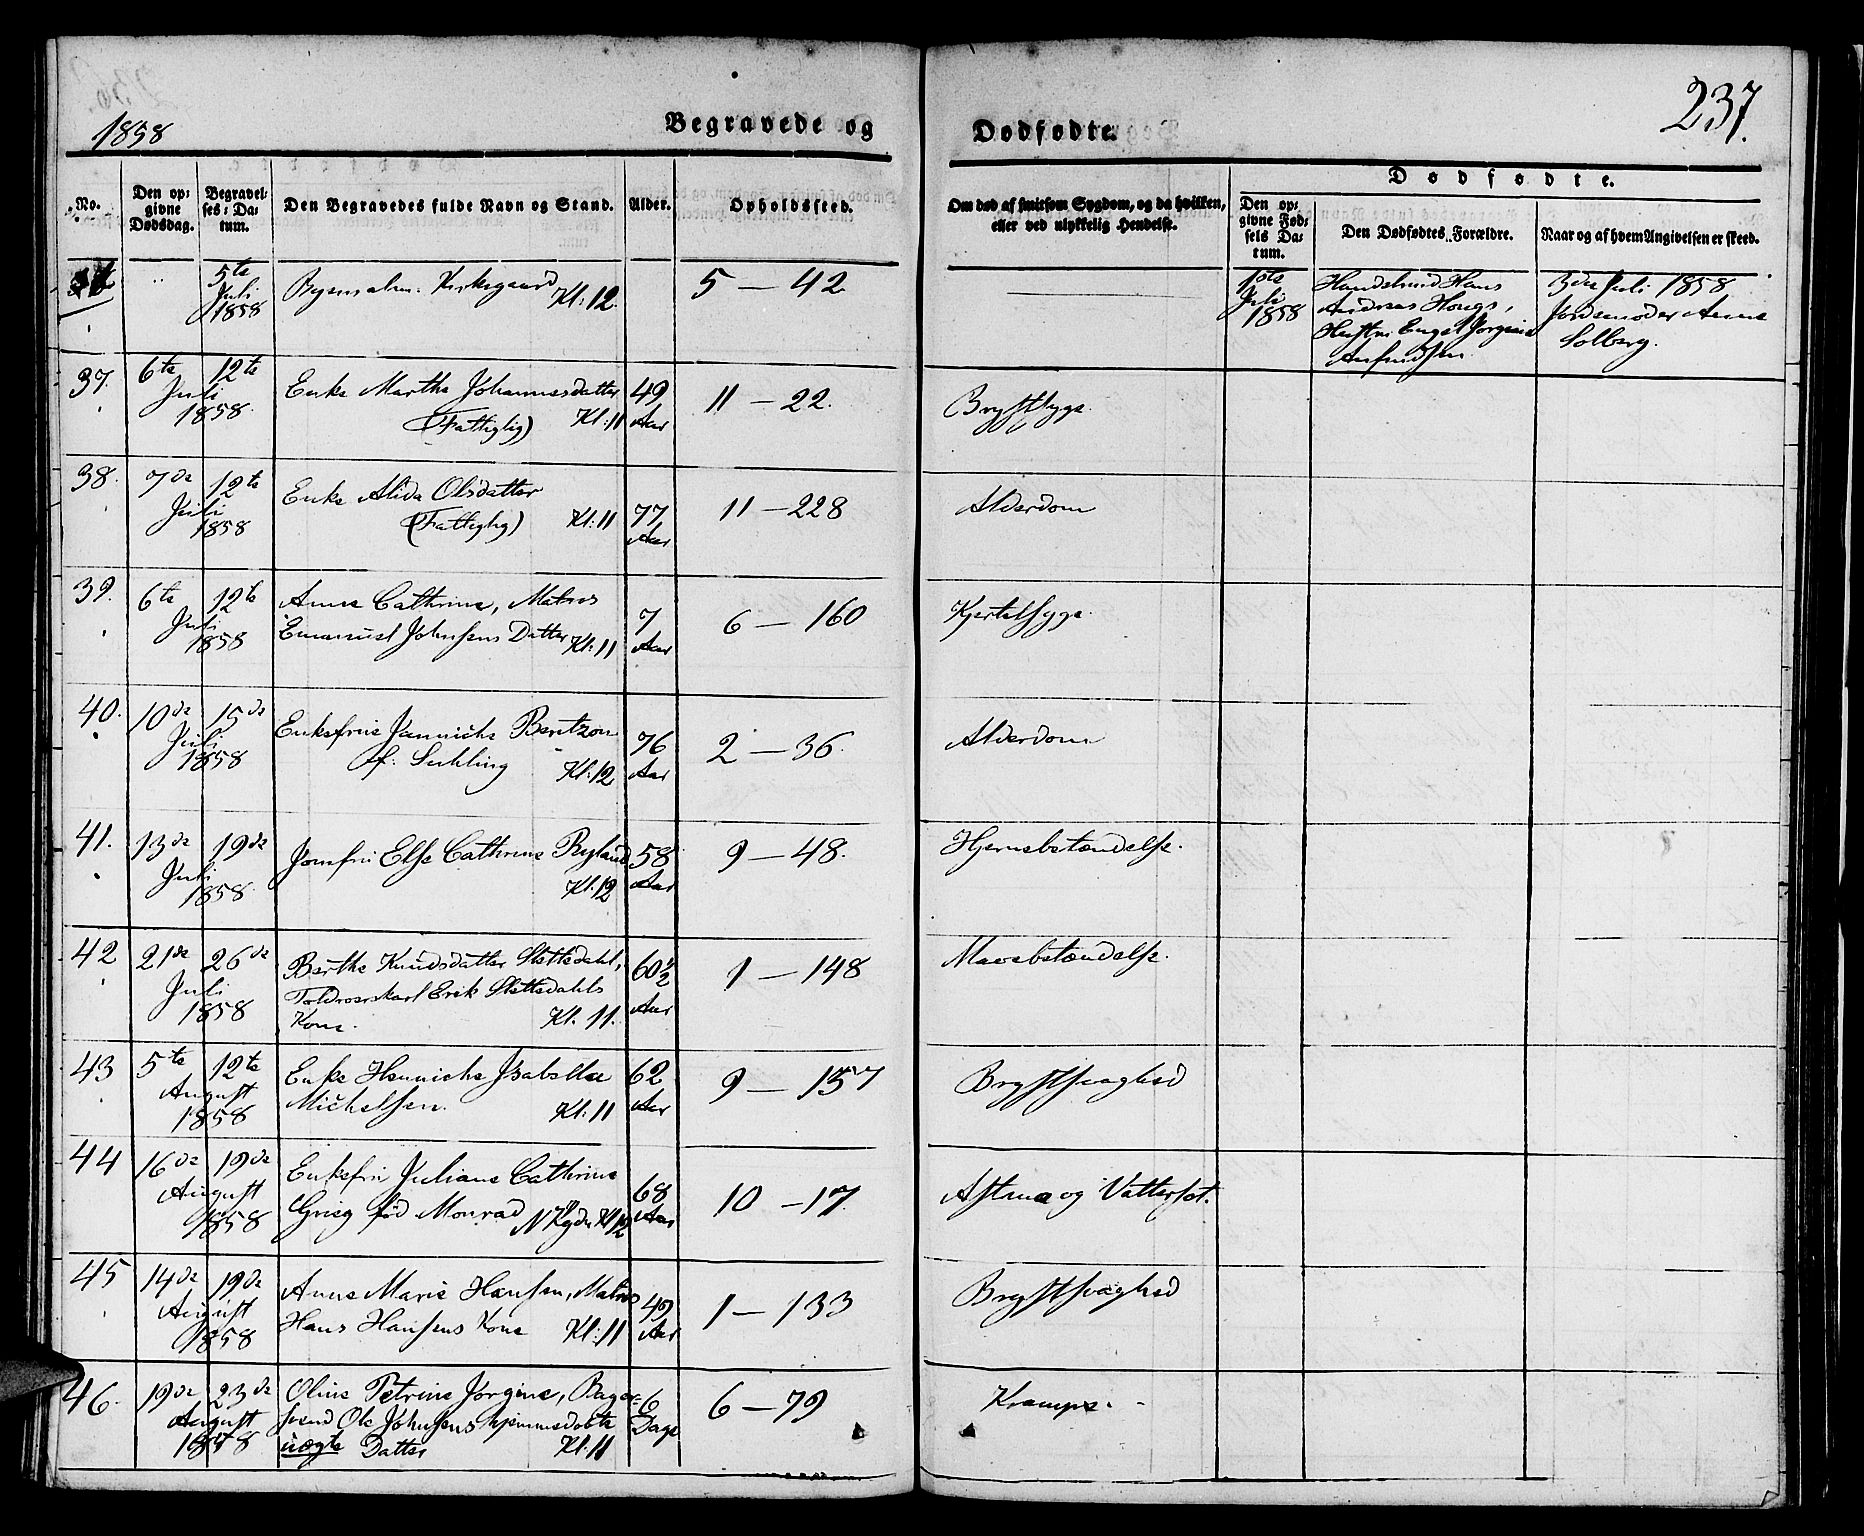 237.
1858
Begravede og Dødfødte.
No.
Den opgivne Dødsdag.
Begravelses-Datum.
Den Begravedes fulde Navn og Stand.
Alder.
Opholdssted.
Om død af smitsom Sygdom, og da hvilken, eller ved ulykkelig Hendelse.
Dødfødte.
Den opgivne Fødsels Datum.
Den Dødfødtes Forældre.
Naar og af hvem Angivelsen er skeed.
5te Juli 1858
Kirkegaard Kl: 12.
5 — 42
1ste Juli 1858
Hans
Andreas
Hustru Engel Jørgine
3die Juli 1858
Jordemoder Anne
Solberg.
37.
6te Juli 12te 1858.
Enke Marthe Johannesdatter
(Fattiglig) Kl: 11
49 Aar
11 — 22.
Brystsyge.
38.
7de Juli 12te 1858
Enke Alida Olsdatter
(Fattiglig) Kl: 11
77 Aar
11 — 228
Alderdom
39.
6te Juli 12te 1858
Anne Cathrine, Matros
Emanuel Johnsens Datter Kl: 11
7 Aar
6 — 160
Kjertelsyge.
40.
10de Juli 15de 1858
Enkefrue Jannicke Berntzon
f: Suhling Kl: 12
76 Aar
2 — 36.
Alderdom
41.
13de Juli 19de 1858.
Jomfru Else Cathrine Ryland
Kl: 12
58 Aar
9 — 48.
Hjernebetændelse.
42
21de Juli 26de 1858
Berthe Knudsdatter Slettedahl,
Toldroerskarl Erik Slettedahls
Kone. Kl. 11.
60½ Aar
1 — 148
Mavebetændelse.
43
5te August 12te 1858
Enke Hennicke Isabella
Michelsen. Kl: 11
62 Aar
9 — 157
Brystsvaghed
44
16de August 19de 1858
Enkefru Juliane Cathrine
Grieg fød Monrad Kl 12
68 Aar
10 — 17.
Astma og Vattersot.
45
14de August 19de 1858
Anne Marie Hansen, Matros
Hans Hansens Kone Kl: 11
49 Aar
1 — 133
Brystsvaghed
46.
19de August 23de 1858
Oline Petrine Jørgine, Bager-
svend Ole Johnsens hjemmedøbte
uægte Datter Kl: 11
6 Dage
6 — 79
Krampe.